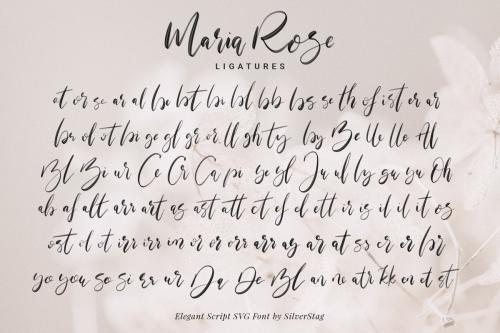 Maria Rose
LIGATURES
ot or sc ar al be bt bi bl bb bs se th of ist er ur
br ol st bi ge gl gr or ll gh ty by Be Ue lle Al
Bl Bi ur Ce Cr Ca pi ye yl Ju ul ly ga ya Oh
ab af alt arr art as ast att et ef el ett ir is il it os
ost el ot irr irr im er or orr arr ay ar at ss er er br
yo you so si sr ur Da De Bl an ne atr kk en et st
Elegant Script SVG Font by SilverStag